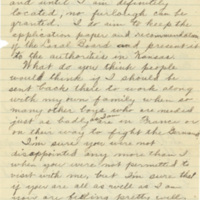 and until I am definitely
located, no furlough can be
granted. I so am to keep the
application paper and recommendation
of the Local Board and present it
to the authorities in Kansas.
What do you think people
would think if I should be
sent back there to work along
with my own family when so
many other boys who are needed
just as badly are in France or
on their way to fight the Germans
I'm sure you were not
disappointed any more than I
when you were not permitted to
visit with me but I'm sure that
if you are all as well as I am
you are getting pretty well